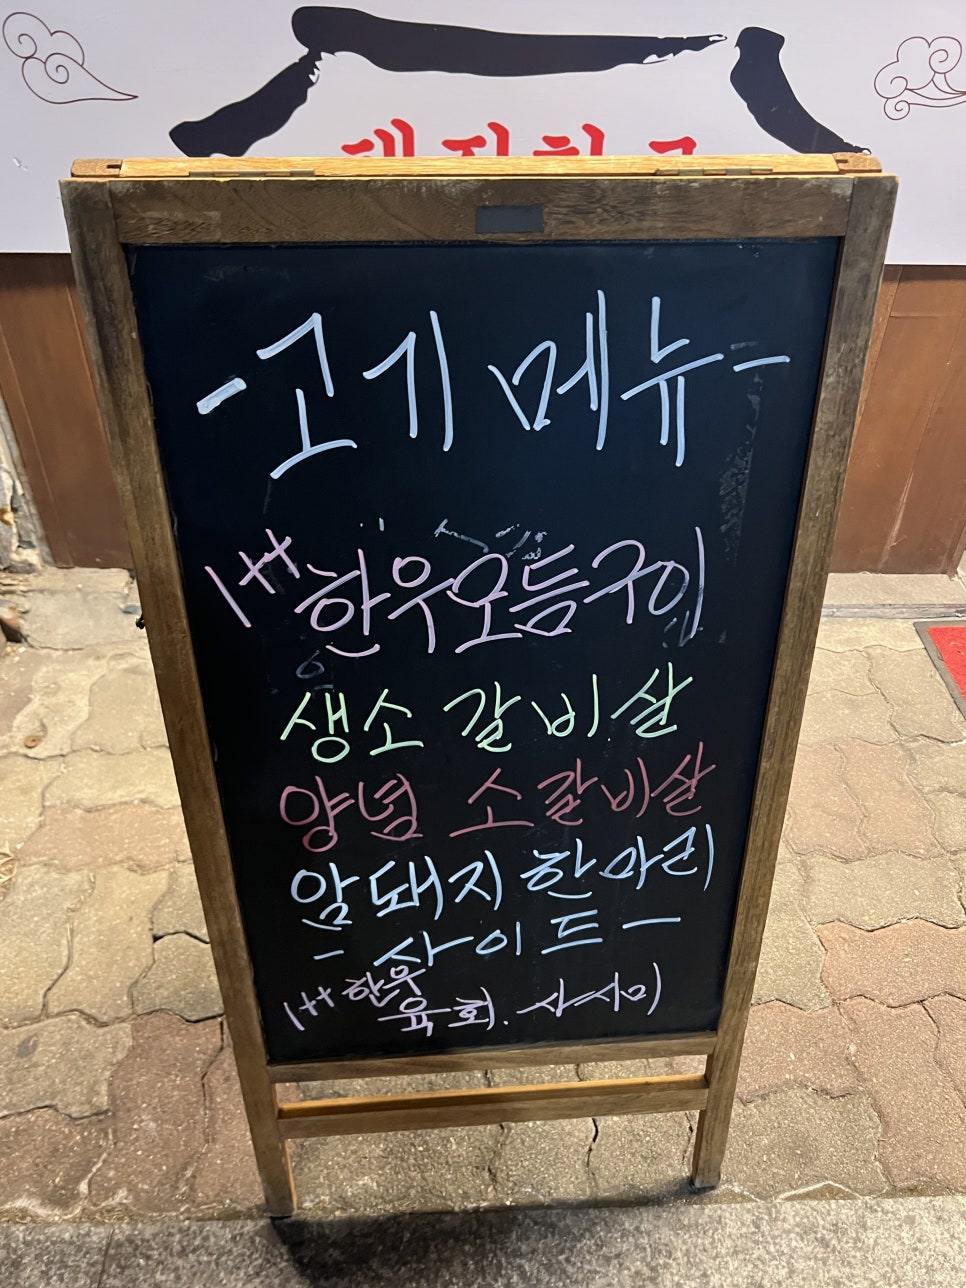 - 고기 메뉴 -
1++ 한우모듬구이
생소갈비살
양념 소갈비살
암돼지 한마리
- 사이드 -
1++ 한우
육회. 사시미